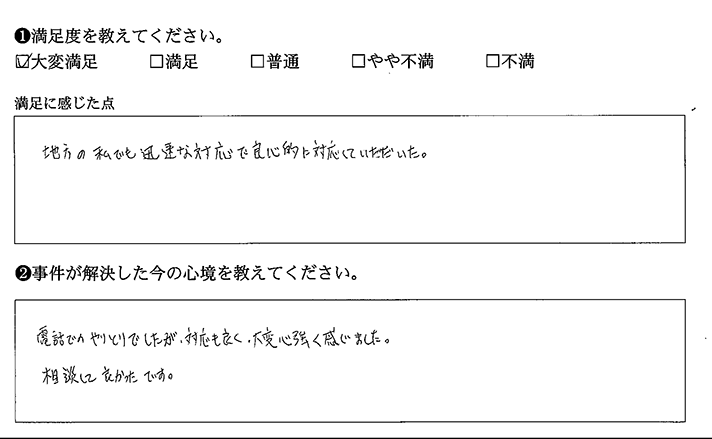 ❶満足度を教えてください。
☑大変満足 □満足 □普通 □やや不満 □不満
満足に感じた点
地方の私でも迅速な対応で良心的に対応していただいた。
❷事件が解決した今の心境を教えてください。
電話でのやりとりでしたが、対応も良く、大変心強く感じました。
相談して良かったです。